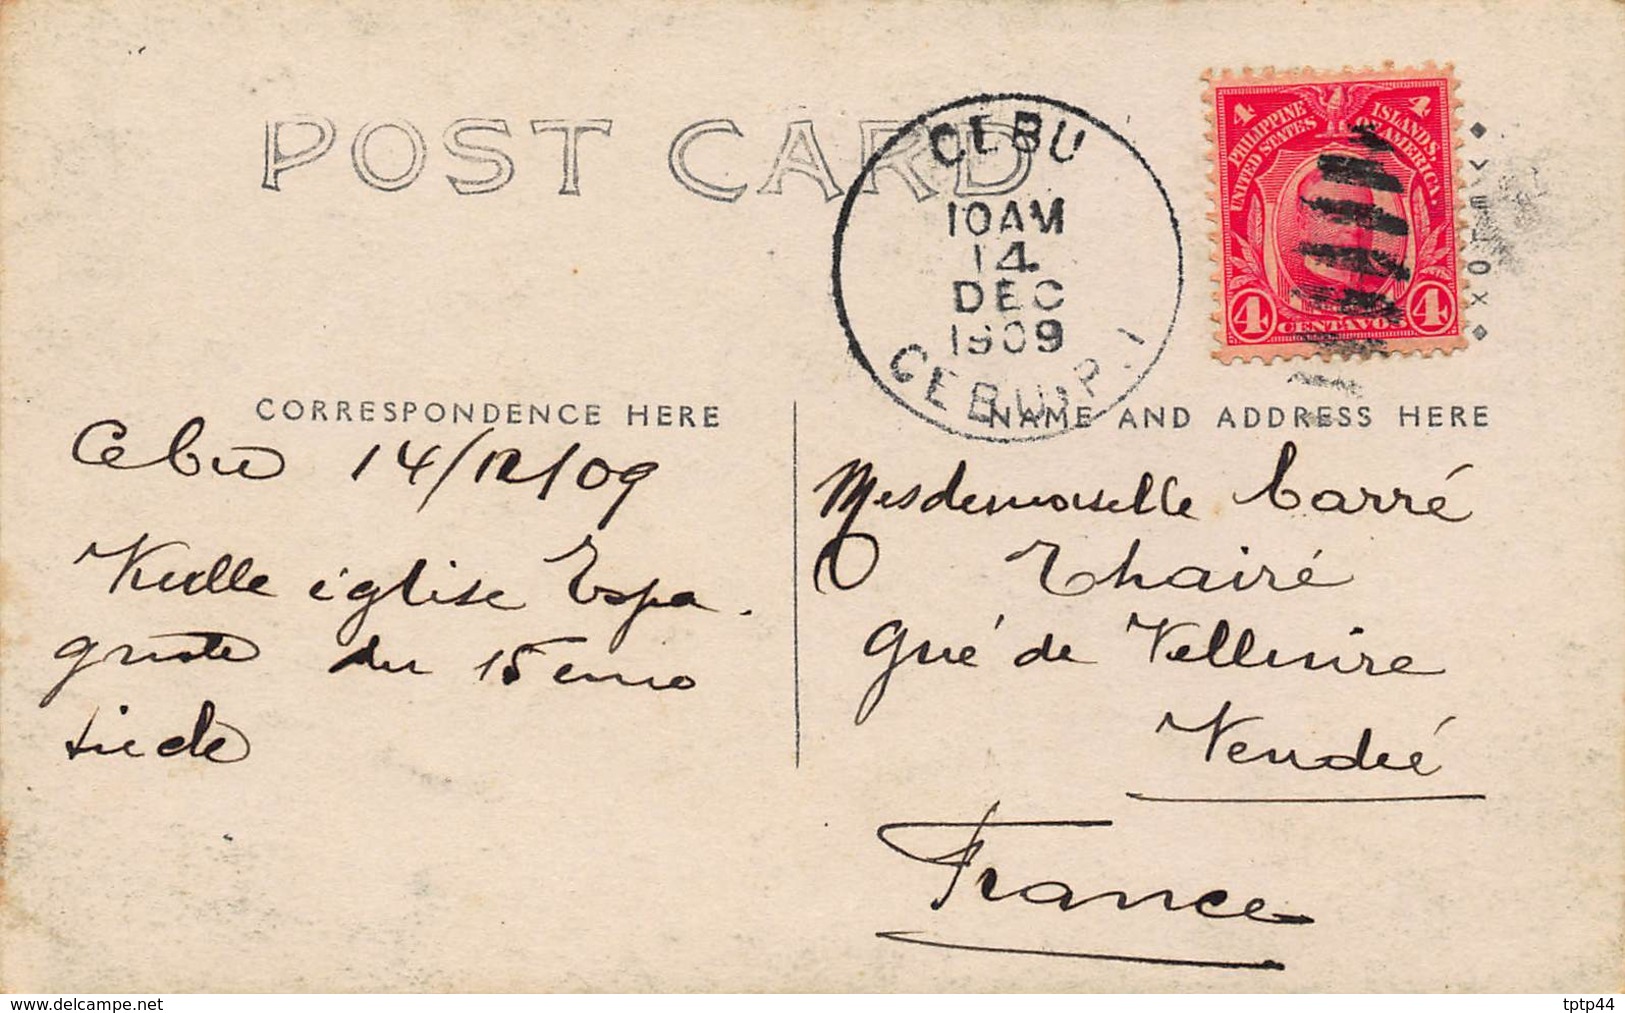 POST CARD
CEBU
10AM
14
DEC
1909
CEBU, P.I
4 4
PHILIPPINE ISLANDS,
UNITED STATES OF AMERICA.
4 CENTAVOS 4
VELOX
CORRESPONDENCE HERE
NAME AND ADDRESS HERE
Cebu 14/12/09
Vieille église Espa-
gnole du 15eme
siecle
Mesdemoiselle Carré
Thairé
Gué de Velluire
Vendée
France
www.delcampe.net
tptp44